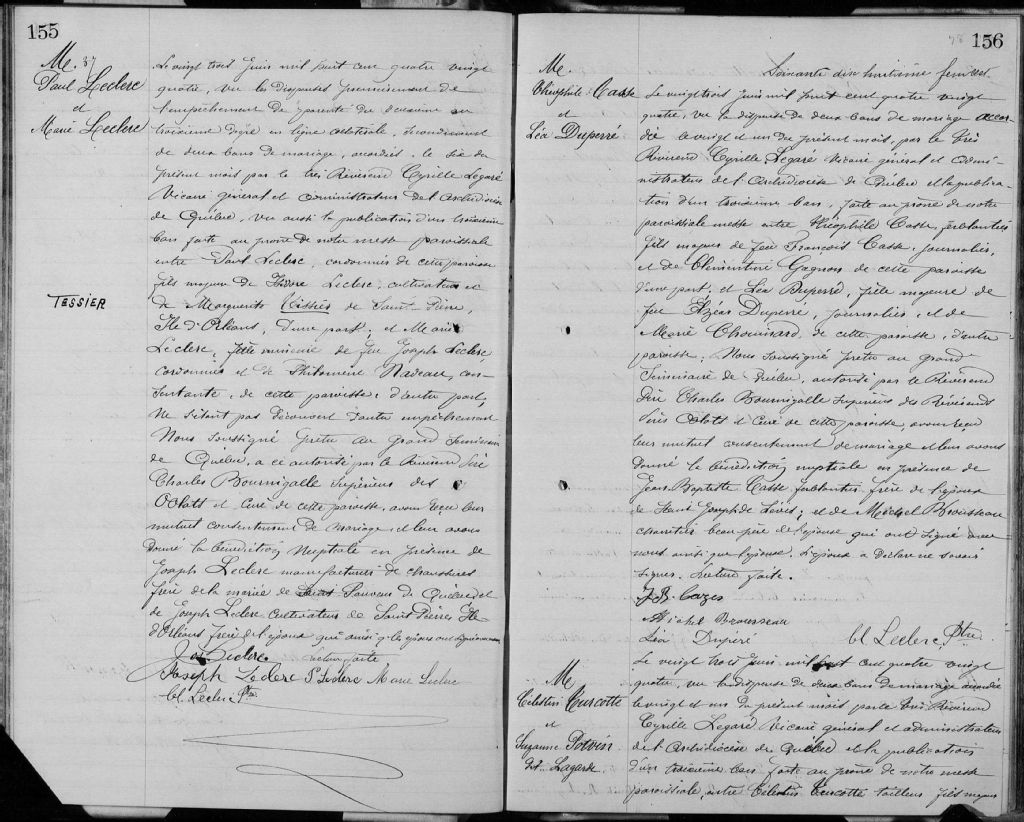 155
M. 37
Paul Leclerc
et
Marie Leclerc
TESSIER
Le vingt trois Juin mil huit cent quatre vingt
quatre, vu les dispenses premièrement de
l'empêchement de parenté du troisième au
troisième degré en ligne collatérale, secondement
de deux bans de mariage, accordées le six du
présent mois par le très Révérend Cyrille Legaré
Vicaire général et administrateur de l'archidiocèse
de Québec, vu aussi la publication d'un troisième
ban faite au prône de notre messe paroissiale
entre Paul Leclerc, cordonnier de cette paroisse
fils majeur de Isidore Leclerc, cultivateur et
de Marguerite Tessier de Saint-Pierre,
Ile d'Orléans, d'une part; et Marie
Leclerc, fille mineure de feu Joseph Leclerc
cordonnier et de Philomène Nadeau, con-
sentante, de cette paroisse, d'autre part,
ne s'étant pas découvert d'autre empêchement
Nous soussigné prêtre au Grand Séminaire
de Québec, à ce autorisé par le Révérend Père
Charles Bournigalle Supérieur des
Oblats et Curé de cette paroisse, avons reçu leur
mutuel consentement de mariage et leur avons
donné la bénédiction nuptiale en présence de
Joseph Leclerc manufacturier de chaussures
frère de la mariée de Saint Sauveur de Québec et
de Joseph Leclerc cultivateur de Saint Pierre Ile
d'Orléans frère de l'époux qui ainsi q. les époux ont signé avec nous
Jos Leclerc lecture faite
Joseph Leclerc P Leclerc Marie Leclerc
Cl. Leclerc Ptre
78 156
M.
Théophile Casse
et
Léa Duperré
Soixante dix huitième feuillet
Le vingt trois Juin mil huit cent quatre vingt
quatre, vu la dispense de deux bans de mariage accor-
dée le vingt et un du présent mois, par le très
Révérend Cyrille Legaré Vicaire général et admi-
nistrateur de l'Archidiocèse de Québec et la publica-
tion d'un troisième ban, faite au prône de notre
paroissiale messe entre Théophile Casse, ferblantier
fils majeur de feu François Casse, journalier,
et de Clémentine Gagnon de cette paroisse
d'une part, et Léa Duperré, fille majeure de
feu Elzéar Duperré, journalier, et de
Marie Chouinard, de cette paroisse, d'autre
paroisse; Nous soussigné prêtre au grand
Séminaire de Québec, autorisé par le Révérend
Père Charles Bournigalle Supérieur des Révérends
Pères Oblats et Curé de cette paroisse, avons reçu
leur mutuel consentement de mariage et leur avons
donné la bénédiction nuptiale en présence de
Jean Baptiste Casse ferblantier frère de l'époux
de Saint Joseph de Lévis; et de Michel Brousseau
charretier beau père de l'épouse qui ont signé avec
nous ainsi que l'épouse. L'époux a déclaré ne savoir
signer. Lecture faite.
J.B. Cazes
Michel Brousseau
Léa Dupéré Cl Leclerc, Ptre
M
Célestin Turcotte
et
Suzanne Potvin
dit Lagarde
Le vingt trois Juin mil huit cent quatre vingt
quatre, vu la dispense de deux bans de mariage accordée
le vingt et un du présent mois par le très Révérend
Cyrille Legaré Vicaire général et administrateur
de l'Archidiocèse de Québec et la publication
d'un troisième ban faite au prône de notre messe
paroissiale, entre Célestin Turcotte tailleur fils majeur